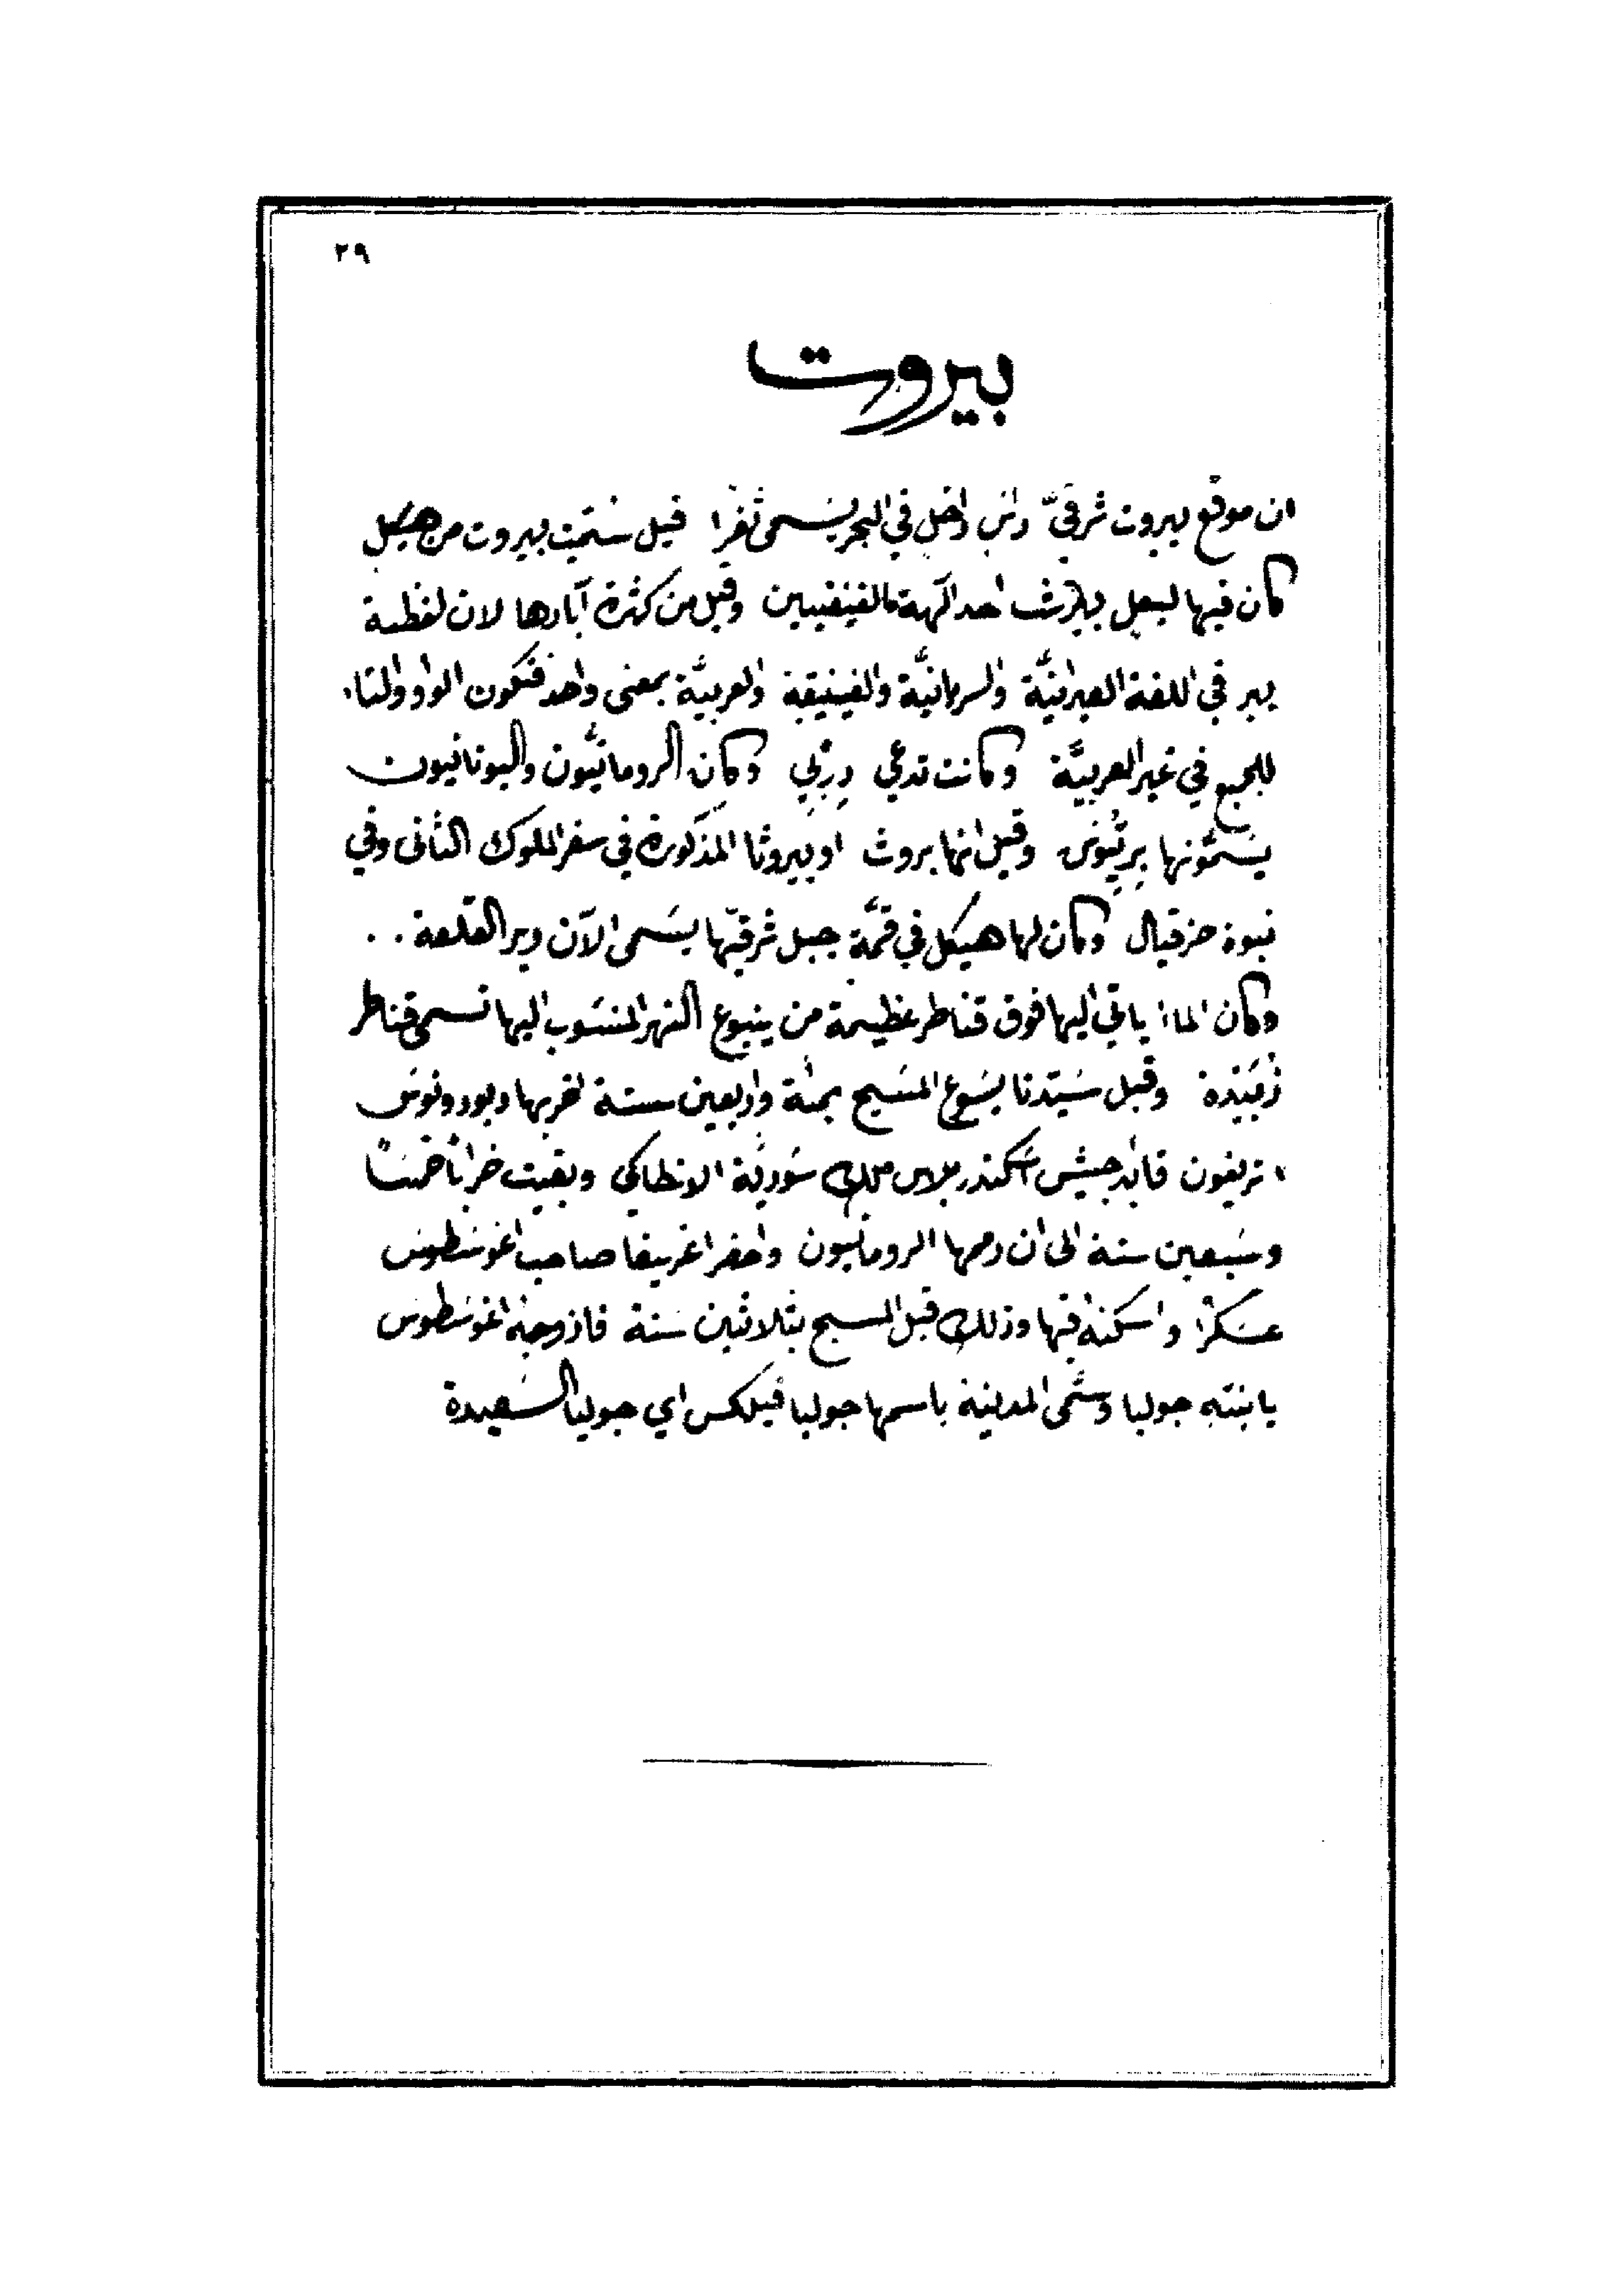 ٢٩
بيروت
ان موقع بيروت شرقيّ رأس داخل في البحر يسمى ثغرا قيل سمّيت بيروت من هيكل
كان فيها لبعل بيرث احد آلهة الفينيقيين وقيل من كثرة آبارها لان لفظة
بير في اللغة العبرانيَّة والسريانيَّة والفينيقية والعربيَّة بمعنى واحد فتكون الواو والتاء
للجمع في غير العربيَّة وكانت تدعى دِرْبِي وكان الرومانيُّون واليونانيون
يسمّونها بِرِيتُوس وقيل انها بروث او بيروثا المذكورة في سفر الملوك الثاني وفي
نبوة حزقيال وكان لها هيكل في قمَّة جبل شرقيّها يسمى الآن دير القلعة . .
وكان الماء ياتي اليها فوق قناطر عظيمة من ينبوع النهر المنسوب اليها تسمى قناطر
زُبَيْدة وقبل سيّدنا يسوع المسيح بمئة واربعين سنة خربها ديودوتوس
تريفون قائد جيش اسكندر بلاس ملك سورية الانطاكي وبقيت خراباً خمساً
وسبعين سنة الى ان رمها الرومانيون واحضر اغريفا صاحب اغوسطوس
عسكرًا واسكنه فيها وذلك قبل المسيح بثلاثين سنة فازوجه اغوسطوس
يابنته جوليا وسمَّى المدينة باسمها جوليا فيلكس اي جوليا السعيدة